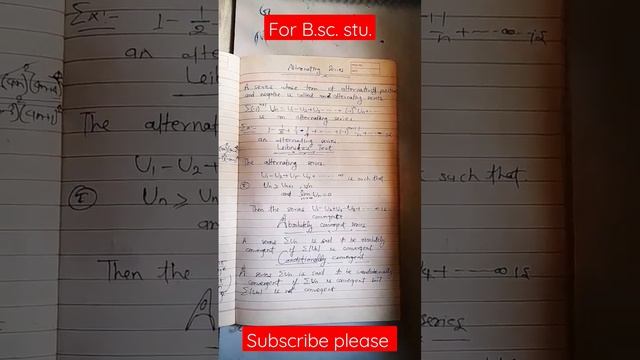 For B.sc. stu.
Alternating Series
A series whose term of alternatively positive
and negative is called an alternating series
Σ(-1)ⁿ⁻¹ Un = U₁-U₂+U₃- ---- + (-1)ⁿ Un+---
is an alternating series
Σx:- 1 - 1/2 + 1/3 - 1/4 + ---- + (-1)ⁿ⁻¹ 1/n + --- ∞ is
an alternating series.
Leibnitz's Test
The alternating series
U₁-U₂+U₃-U₄+ ---- ∞ is such that
① Un ≥ Un+1, ∀n
and lim Un = 0
n→∞
Then the series U₁-U₂+U₃-U₄+ --- ∞ is
convergent
Absolutely converged series
A series ΣUn is said to be absolutely
convergent if Σ|Un| is convergent
Conditionally convergent
A series ΣUn is said to be conditionally
convergent if ΣUn is convergent but
Σ|Un| is not convergent
Subscribe please